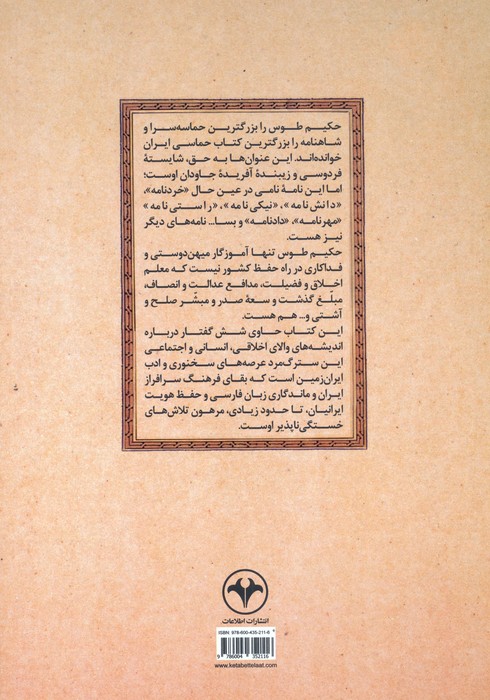 حکیم طوس را بزرگترین حماسه‌سرا و
شاهنامه را بزرگترین کتاب حماسی ایران
خوانده‌اند. این عنوان‌ها به حق، شایستهٔ
فردوسی و زیبندهٔ آفریدهٔ جاودان اوست؛
اما این نامهٔ نامی در عین حال «خردنامه»،
«دانش نامه»، «نیکی نامه»، «راستی نامه»
«مهرنامه»، «دادنامه» و بسا... نامه‌های دیگر
نیز هست.
حکیم طوس تنها آموزگار میهن‌دوستی و
فداکاری در راه حفظ کشور نیست که معلم
اخلاق و فضیلت، مدافع عدالت و انصاف،
مبلّغ گذشت و سعهٔ صدر و مبشّر صلح و
آشتی و... هم هست.
این کتاب حاوی شش گفتار درباره
اندیشه‌های والای اخلاقی، انسانی و اجتماعی
این سترگ‌مرد عرصه‌های سخنوری و ادب
ایران‌زمین است که بقای فرهنگ سرافراز
ایران و ماندگاری زبان فارسی و حفظ هویت
ایرانیان، تا حدود زیادی، مرهون تلاش‌های
خستگی‌ناپذیر اوست.
انتشارات اطلاعات
ISBN: 978-600-435-211-6
9 786004 352116
www.ketabettelaat.com